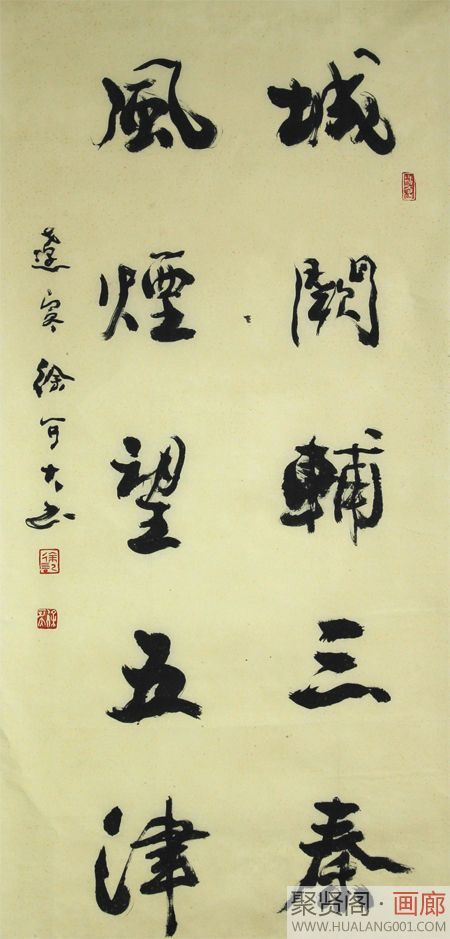 城闕輔三秦
風煙望五津
徐可大书
聚贤阁·画廊
WWW.HUALANG001.COM